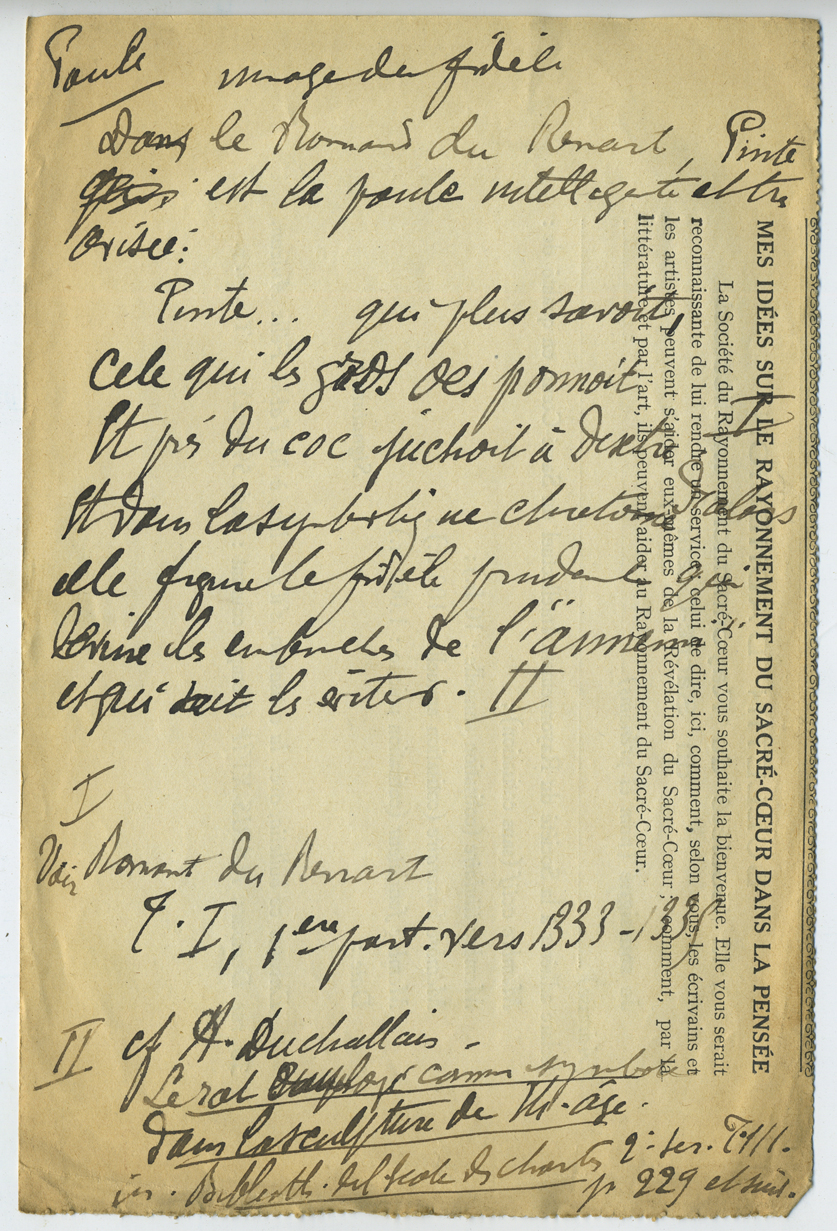 Poule image du fidèle
Dans le Romans du Renart, Pinte
est la poule intelligente et très
avisée:
Pinte... qui plus savoit,
Cele qui les gros oes ponnoit
Et près du coc juchoit à dextre I
Et dans la symbolique chrétienne d'alors
elle figure le fidèle prudent qui
devine les embuches de l'"annemi"
et qui sait les éviter. II
I
Voir Romant du Renart
T. I, 1ere part. vers 1333-1335
II cf A. Duchallais -
Le rat employé comme symbole
dans la sculpture du M-âge.
in. Biblioth. de l'école des chartes 2e ser. T.III.
p 229 et suiv.
MES IDÉES SUR LE RAYONNEMENT DU SACRÉ-CŒUR DANS LA PENSÉE
La Société du Rayonnement du Sacré-Cœur vous souhaite la bienvenue. Elle vous serait
reconnaissante de lui rendre un service, celui de dire, ici, comment, selon vous, les écrivains et
les artistes peuvent s'aider eux-mêmes de la Révélation du Sacré-Cœur ; comment, par la
littérature et par l'art, ils peuvent aider au Rayonnement du Sacré-Cœur.